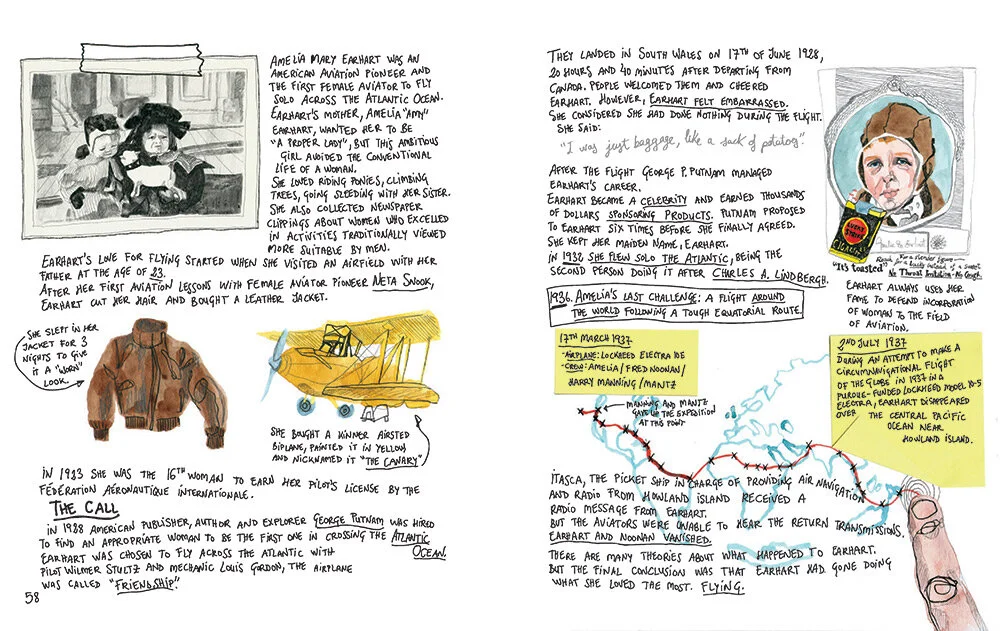 AMELIA MARY EARHART WAS AN
AMERICAN AVIATION PIONEER AND
THE FIRST FEMALE AVIATOR TO FLY
SOLO ACROSS THE ATLANTIC OCEAN.
EARHART'S MOTHER, AMELIA "AMY"
EARHART, WANTED HER TO BE
"A PROPER LADY", BUT THIS AMBITIOUS
GIRL AVOIDED THE CONVENTIONAL
LIFE OF A WOMAN.
SHE LOVED RIDING PONIES, CLIMBING
TREES, GOING SLEDDING WITH HER SISTER.
SHE ALSO COLLECTED NEWSPAPER
CLIPPINGS ABOUT WOMEN WHO EXCELLED
IN ACTIVITIES TRADITIONALLY VIEWED
MORE SUITABLE BY MEN.
EARHART'S LOVE FOR FLYING STARTED WHEN SHE VISITED AN AIRFIELD WITH HER
FATHER AT THE AGE OF 23.
AFTER HER FIRST AVIATION LESSONS WITH FEMALE AVIATOR PIONEER NETA SNOOK,
EARHART CUT HER HAIR AND BOUGHT A LEATHER JACKET.
SHE SLEPT IN HER
JACKET FOR 3
NIGHTS TO GIVE
IT A "WORN"
LOOK.
SHE BOUGHT A KINNER AIRSTED
BIPLANE, PAINTED IT IN YELLOW
AND NICKNAMED IT "THE CANARY"
IN 1933 SHE WAS THE 16TH WOMAN TO EARN HER PILOT'S LICENSE BY THE
FÉDÉRATION AÉRONAUTIQUE INTERNATIONALE.
THE CALL
IN 1938 AMERICAN PUBLISHER, AUTHOR AND EXPLORER GEORGE PUTNAM WAS HIRED
TO FIND AN APPROPRIATE WOMAN TO BE THE FIRST ONE IN CROSSING THE ATLANTIC
OCEAN.
EARHART WAS CHOSEN TO FLY ACROSS THE ATLANTIC WITH
PILOT WILMER STULTZ AND MECHANIC LOUIS GORDON, THE AIRPLANE
WAS CALLED "FRIENDSHIP".
58
THEY LANDED IN SOUTH WALES ON 17TH OF JUNE 1928,
20 HOURS AND 40 MINUTES AFTER DEPARTING FROM
CANADA. PEOPLE WELCOMED THEM AND CHEERED
EARHART. HOWEVER, EARHART FELT EMBARRASSED.
SHE CONSIDERED SHE HAD DONE NOTHING DURING THE FLIGHT.
SHE SAID:
"I was just baggage, like a sack of potatoes."
AFTER THE FLIGHT GEORGE P. PUTNAM MANAGED
EARHART'S CAREER.
EARHART BECAME A CELEBRITY AND EARNED THOUSANDS
OF DOLLARS SPONSORING PRODUCTS. PUTNAM PROPOSED
TO EARHART SIX TIMES BEFORE SHE FINALLY AGREED.
SHE KEPT HER MAIDEN NAME, EARHART.
IN 1932 SHE FLEW SOLO THE ATLANTIC, BEING THE
SECOND PERSON DOING IT AFTER CHARLES A. LINDBERGH.
LUCKY
STRIKE
"It's toasted"
No Throat Irritation-No Cough.
EARHART ALWAYS USED HER
FAME TO DEFEND INCORPORATION
OF WOMAN TO THE FIELD
OF AVIATION.
1936. AMELIA'S LAST CHALLENGE: A FLIGHT AROUND
THE WORLD FOLLOWING A TOUGH EQUATORIAL ROUTE.
17TH MARCH 1937
-AIRPLANE: LOCKHEED ELECTRA 10E
-CREW: AMELIA / FRED NOONAN /
HARRY MANNING / MANTZ
MANNING AND MANTZ
GAVE UP THE EXPEDITION
AT THIS POINT
2ND JULY 1937
DURING AN ATTEMPT TO MAKE A
CIRCUMNAVIGATIONAL FLIGHT
OF THE GLOBE IN 1937 IN A
PURDUE-FUNDED LOCKHEED MODEL 10-5
ELECTRA, EARHART DISAPPEARED
OVER THE CENTRAL PACIFIC
OCEAN NEAR
HOWLAND ISLAND.
ITASCA, THE PICKET SHIP IN CHARGE OF PROVIDING AIR NAVIGATION
AND RADIO FROM HOWLAND ISLAND RECEIVED A
RADIO MESSAGE FROM EARHART.
BUT THE AVIATORS WERE UNABLE TO HEAR THE RETURN TRANSMISSIONS.
EARHART AND NOONAN VANISHED.
THERE ARE MANY THEORIES ABOUT WHAT HAPPENED TO EARHART.
BUT THE FINAL CONCLUSION WAS THAT EARHART HAD GONE DOING
WHAT SHE LOVED THE MOST. FLYING.